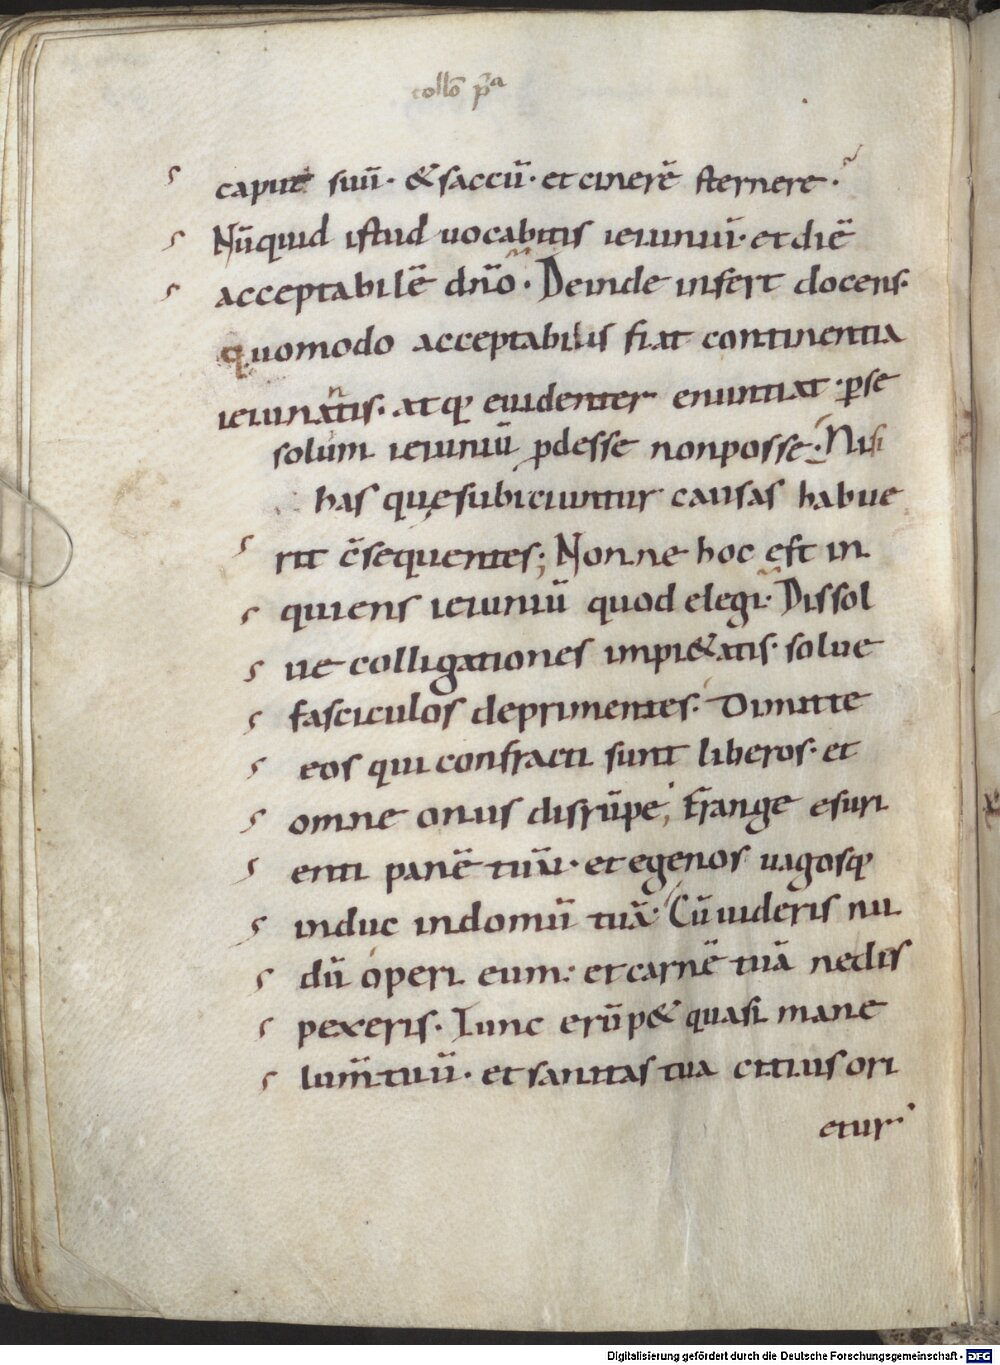 collō pª
caput suū· & saccū· et cinerē sternere·
Nūquid istud uocabitis ieiuniū· et diē
acceptabilē dn̄o· Deinde infert docens·
quomodo acceptabilis fiat continentia
ieiunantis· atq; euidenter enuntiat· ꝑse
solum ieiuniū ꝓdesse nonposse· Nisi
has quęsubiciuntur causas habue
rit c̄sequentes; Nonne hoc est in
quiens ieiuniū quod elegi· Dissol
ue colligationes impi&atis· solue
fasciculos deprimentes· Dimitte
eos qui confracti sunt liberos· et
omne onus disrūpe; Frange esuri
enti panē tuū· et egenos uagosq;
induc indomū tuā· Cū uideris nu
dū operi eum: et carnē tuā nedis
pexeris· Tunc erūp& quasi mane
lum̄ tuū· et sanitas tua citius ori
etur·
Digitalisierung gefördert durch die Deutsche Forschungsgemeinschaft - DFG